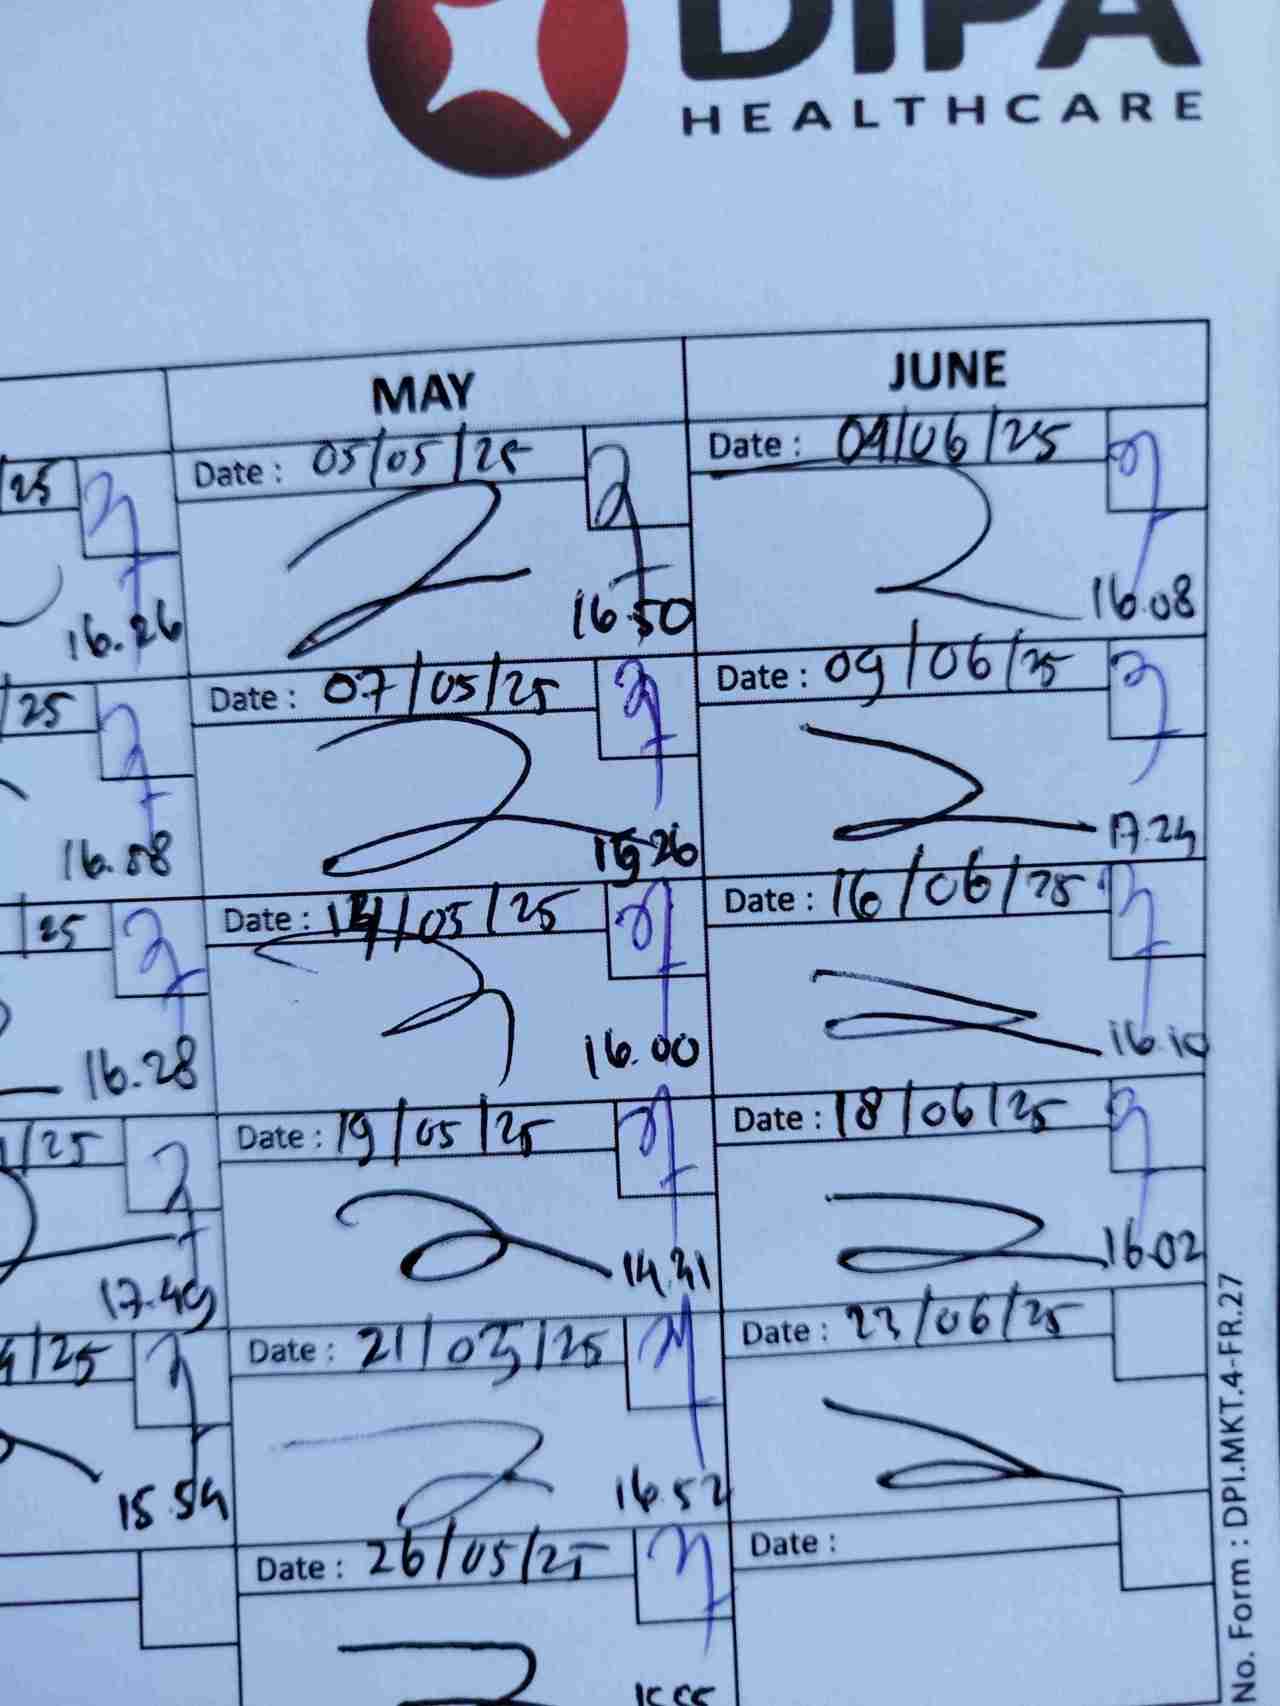 DIPA
HEALTHCARE
MAY JUNE
25 Date : 05/05/25 Date : 04/06/25
16.26 16.50 16.08
25 Date : 07/05/25 Date : 09/06/25
16.58 26 17.24
25 Date : 14/05/25 Date : 16/06/25
16.28 16.00 16.10
/25 Date : 19/05/25 Date : 18/06/25
17.49 14.31 16.02
/25 Date : 21/05/25 Date : 23/06/25
15.54 16.52
Date : 26/05/25 Date :
15.55
No. Form : DPI.MKT.4-FR.27